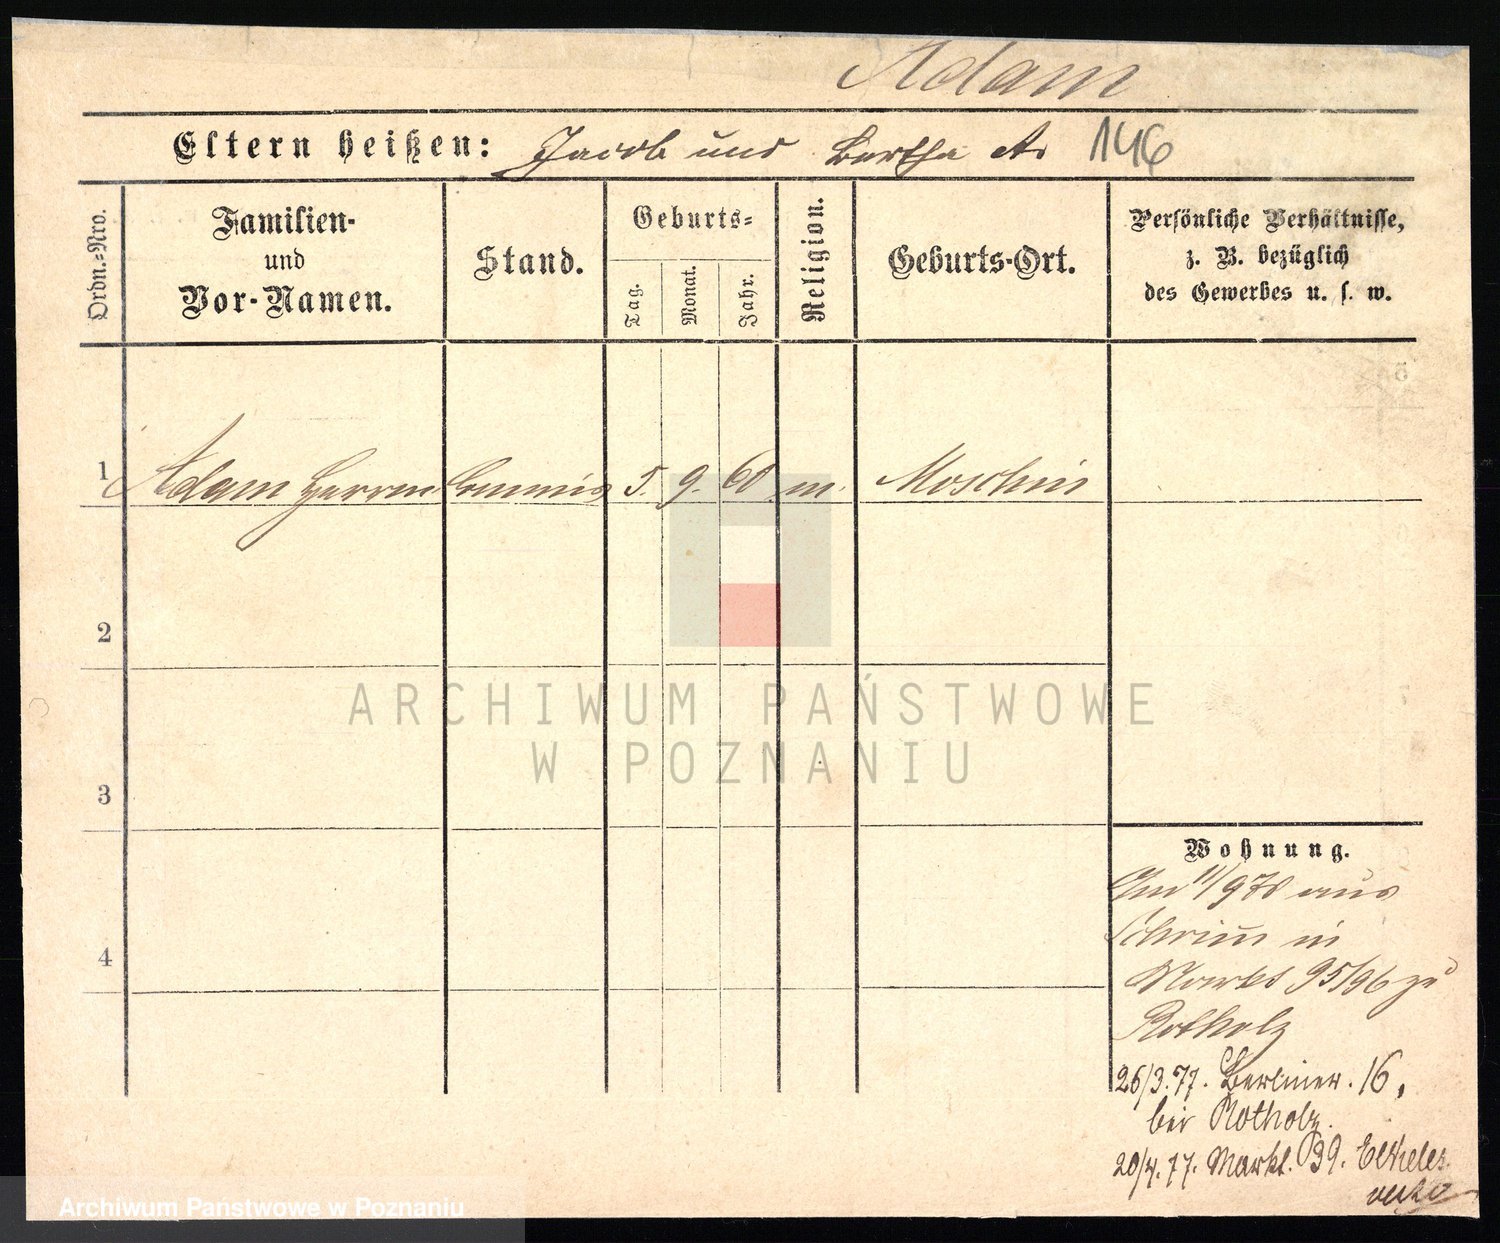 Adam
Eltern heißen: Jacob und Bertha A. 146
Ordn.=Nro.
Familien-
und
Vor-Namen.
Stand.
Geburts=
Tag.
Monat.
Jahr.
Religion.
Geburts-Ort.
Persönliche Verhältnisse,
z. B. bezüglich
des Gewerbes u. s. w.
1 Adam Herrm. Commis 5. 9. 60 m. Moschin
2
3
4
Wohnung.
Am 11/9 78 aus
Schrimm in
Markt 95/96 zu
Rotholz
26/3.77. Berliner. 16,
bei Rotholz.
20/4.77. Markt. 39.
ARCHIWUM PAŃSTWOWE
W POZNANIU
Archiwum Państwowe w Poznaniu